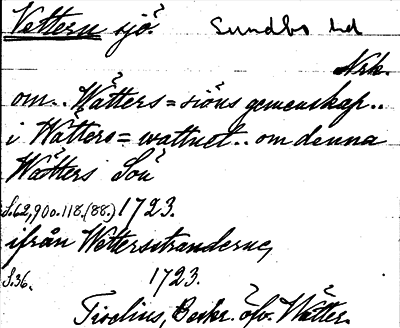 Vettern sjö. Sundbo hd
Nrk.
om.. Wätters=siöns gemenskap..
i Wätters=wattnet.. om denna
Wätters Söö
S.62,90 o. 118.(88.) 1723.
ifrån Wetterstranderne,
S.36. 1723.
Tiselius, Beskr. öfv. Wätter.